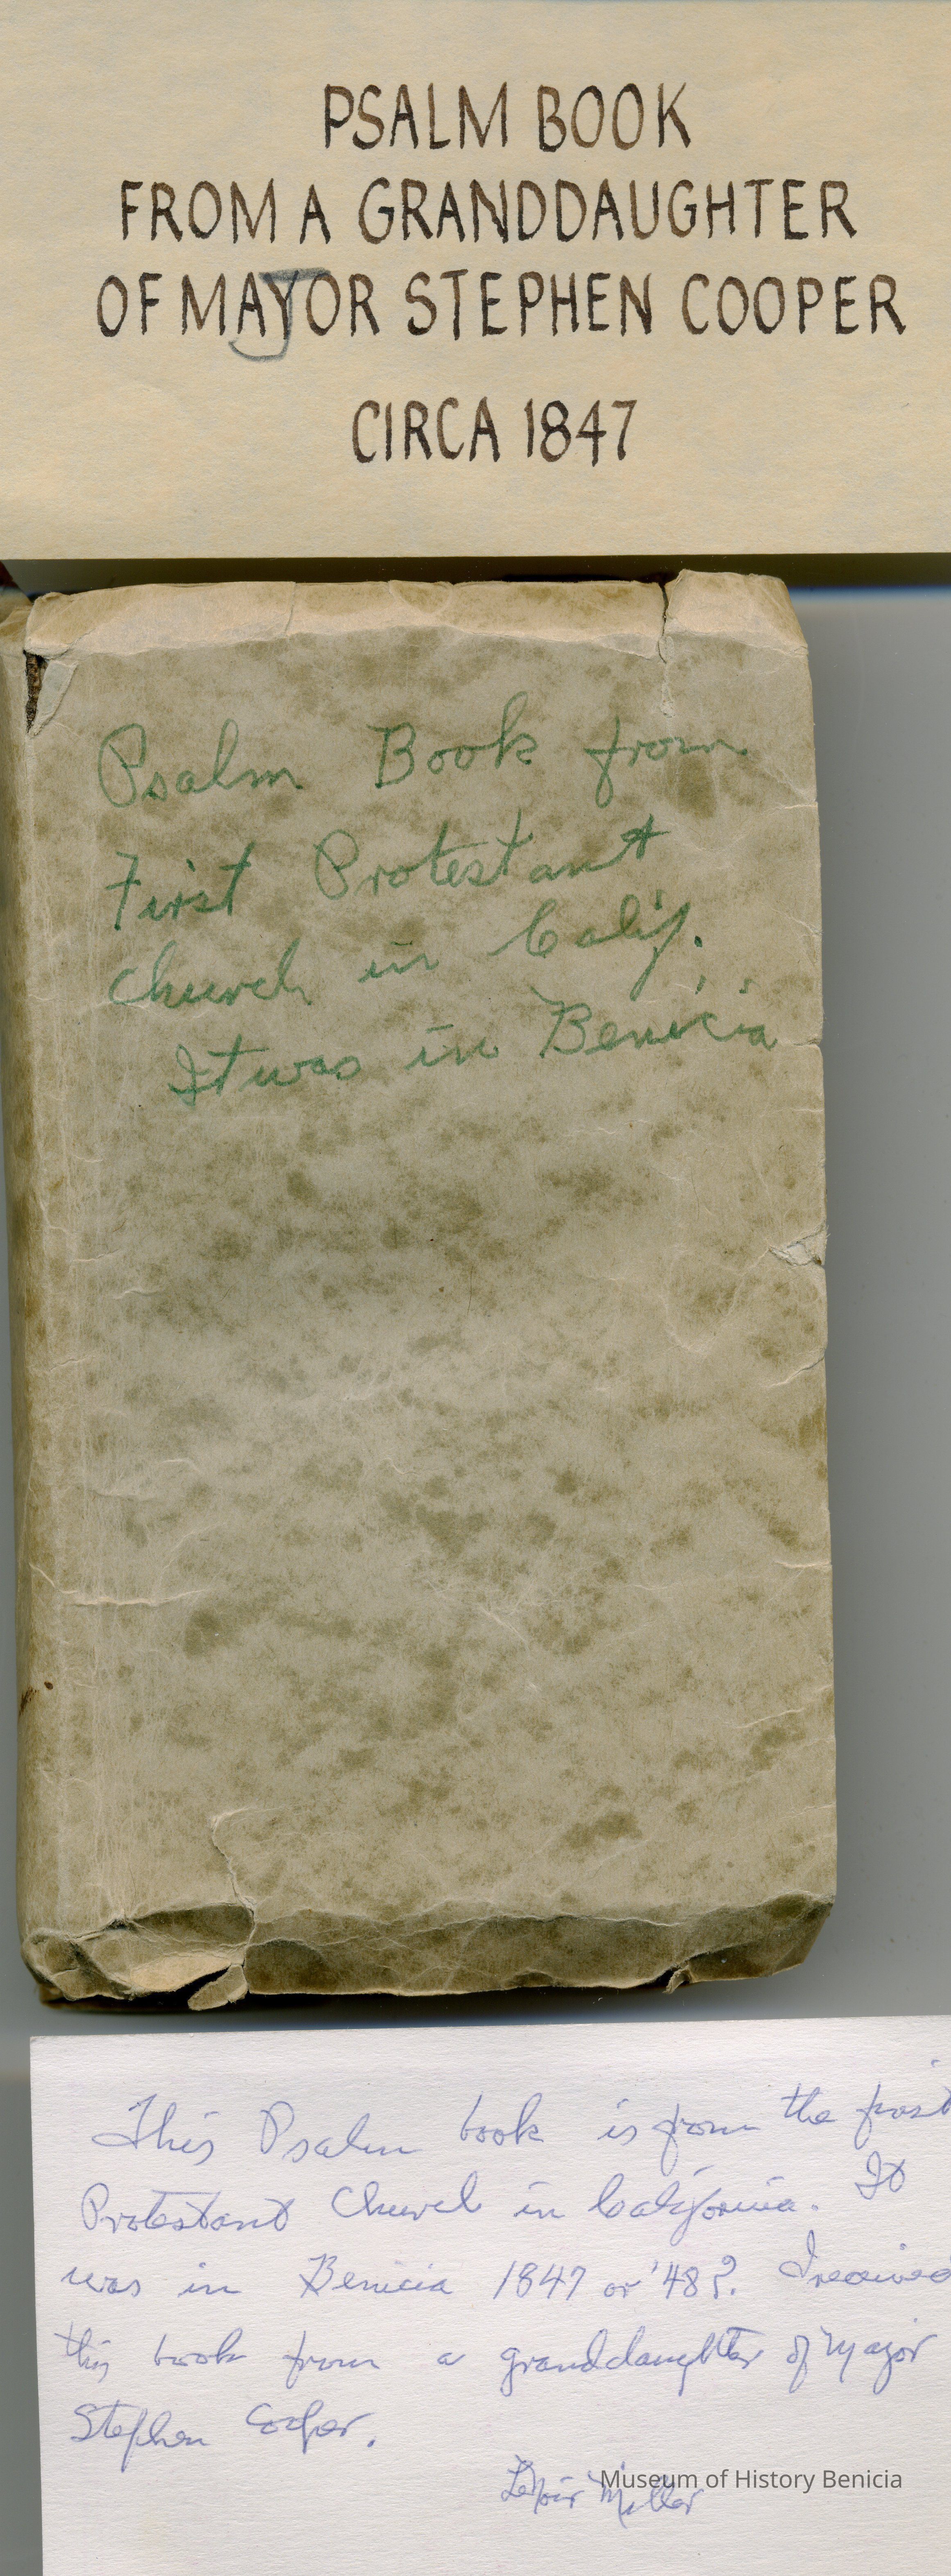 PSALM BOOK
FROM A GRANDDAUGHTER
OF MAJOR STEPHEN COOPER
CIRCA 1847
Psalm Book from
First Protestant
Church in Calif.
It was in Benicia
This Psalm book is from the first
Protestant Church in California. It
was in Benicia 1847 or '48?. I received
this book from a granddaughter of Major
Stephen Cooper.
LeNoir Miller
Museum of History Benicia